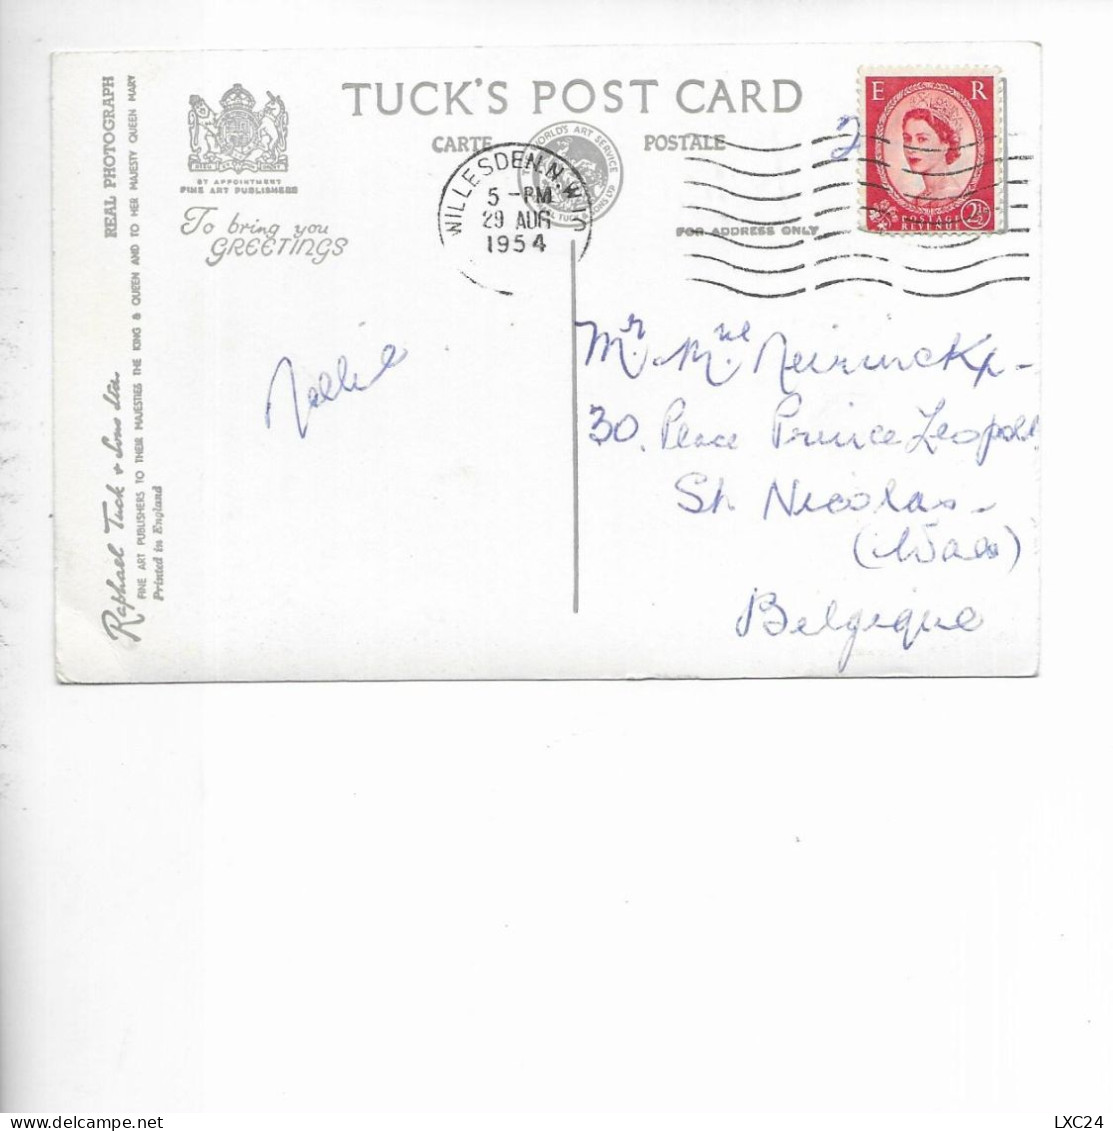 TUCK'S POST CARD
CARTE POSTALE
BY APPOINTMENT
FINE ART PUBLISHERS
To bring you
GREETINGS
REAL PHOTOGRAPH
Raphael Tuck & Sons Ltd.
FINE ART PUBLISHERS TO THEIR MAJESTIES THE KING & QUEEN AND TO HER MAJESTY QUEEN MARY
Printed in England
WILLESDEN N.W.10
5 - PM
29 AUG
1954
FOR ADDRESS ONLY
2
E R
POSTAGE
REVENUE
2½D
Nellie
Mr. Mme Neirinckx -
30. Place Prince Leopold
St. Nicolas -
(Waes)
Belgique
LXC24